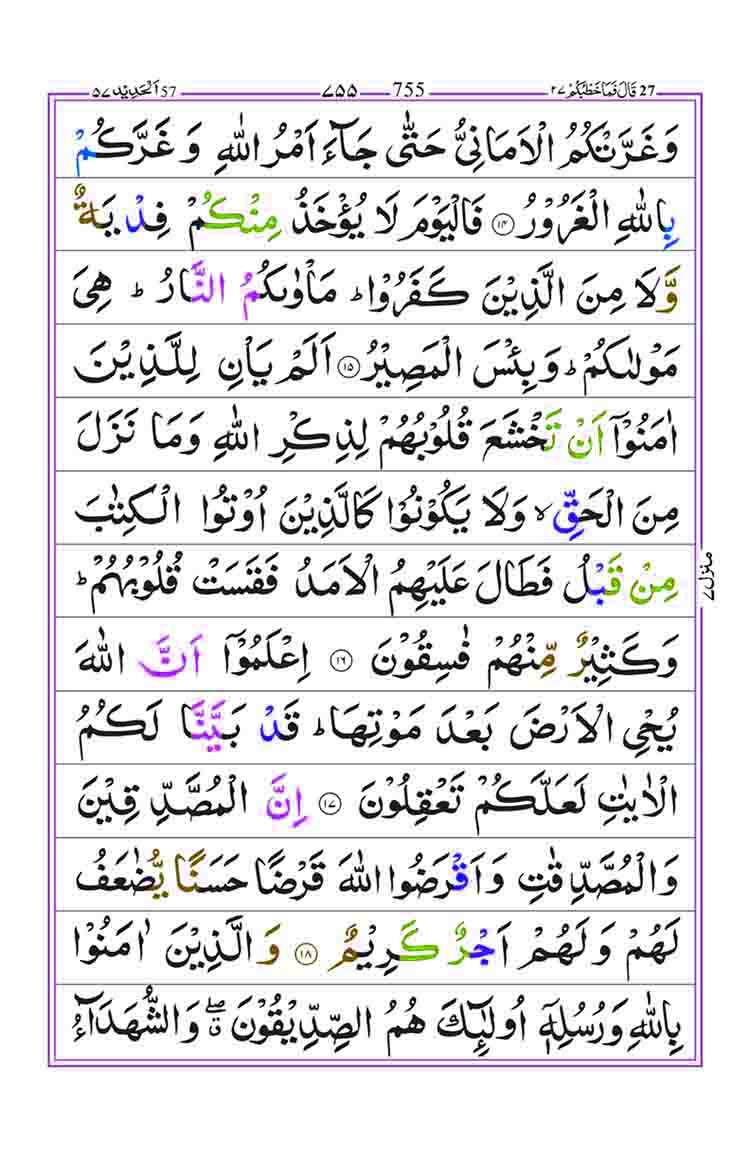 ٢٧ قَالَ فَمَا خَطْبُكُمْ 27 755 ٧٥٥ 57 اَلْحَدِيْد ٥٧
وَغَرَّتْكُمُ الْاَمَانِيُّ حَتّٰى جَآءَ اَمْرُ اللّٰهِ وَ غَرَّكُمْ
بِاللّٰهِ الْغَرُوْرُ ۝١٤ فَالْيَوْمَ لَا يُؤْخَذُ مِنْكُمْ فِدْيَةٌ
وَّلَا مِنَ الَّذِيْنَ كَفَرُوْا ؕ مَاْوٰىكُمُ النَّارُ ؕ هِيَ
مَوْلٰىكُمْ ؕ وَبِئْسَ الْمَصِيْرُ ۝١٥ اَلَمْ يَاْنِ لِلَّذِيْنَ
اٰمَنُوْۤا اَنْ تَخْشَعَ قُلُوْبُهُمْ لِذِكْرِ اللّٰهِ وَمَا نَزَلَ
مِنَ الْحَقِّ ۙ وَلَا يَكُوْنُوْا كَالَّذِيْنَ اُوْتُوا الْكِتٰبَ
مِنْ قَبْلُ فَطَالَ عَلَيْهِمُ الْاَمَدُ فَقَسَتْ قُلُوْبُهُمْ ؕ
منزل ٧
وَكَثِيْرٌ مِّنْهُمْ فٰسِقُوْنَ ۝١٦ اِعْلَمُوْۤا اَنَّ اللّٰهَ
يُحْيِ الْاَرْضَ بَعْدَ مَوْتِهَا ؕ قَدْ بَيَّنَّا لَكُمُ
الْاٰيٰتِ لَعَلَّكُمْ تَعْقِلُوْنَ ۝١٧ اِنَّ الْمُصَّدِّقِيْنَ
وَالْمُصَّدِّقٰتِ وَاَقْرَضُوا اللّٰهَ قَرْضًا حَسَنًا يُّضٰعَفُ
لَهُمْ وَلَهُمْ اَجْرٌ كَرِيْمٌ ۝١٨ وَالَّذِيْنَ اٰمَنُوْا
بِاللّٰهِ وَرُسُلِهٖۤ اُولٰٓئِكَ هُمُ الصِّدِّيْقُوْنَ ۖۗ وَالشُّهَدَآءُ